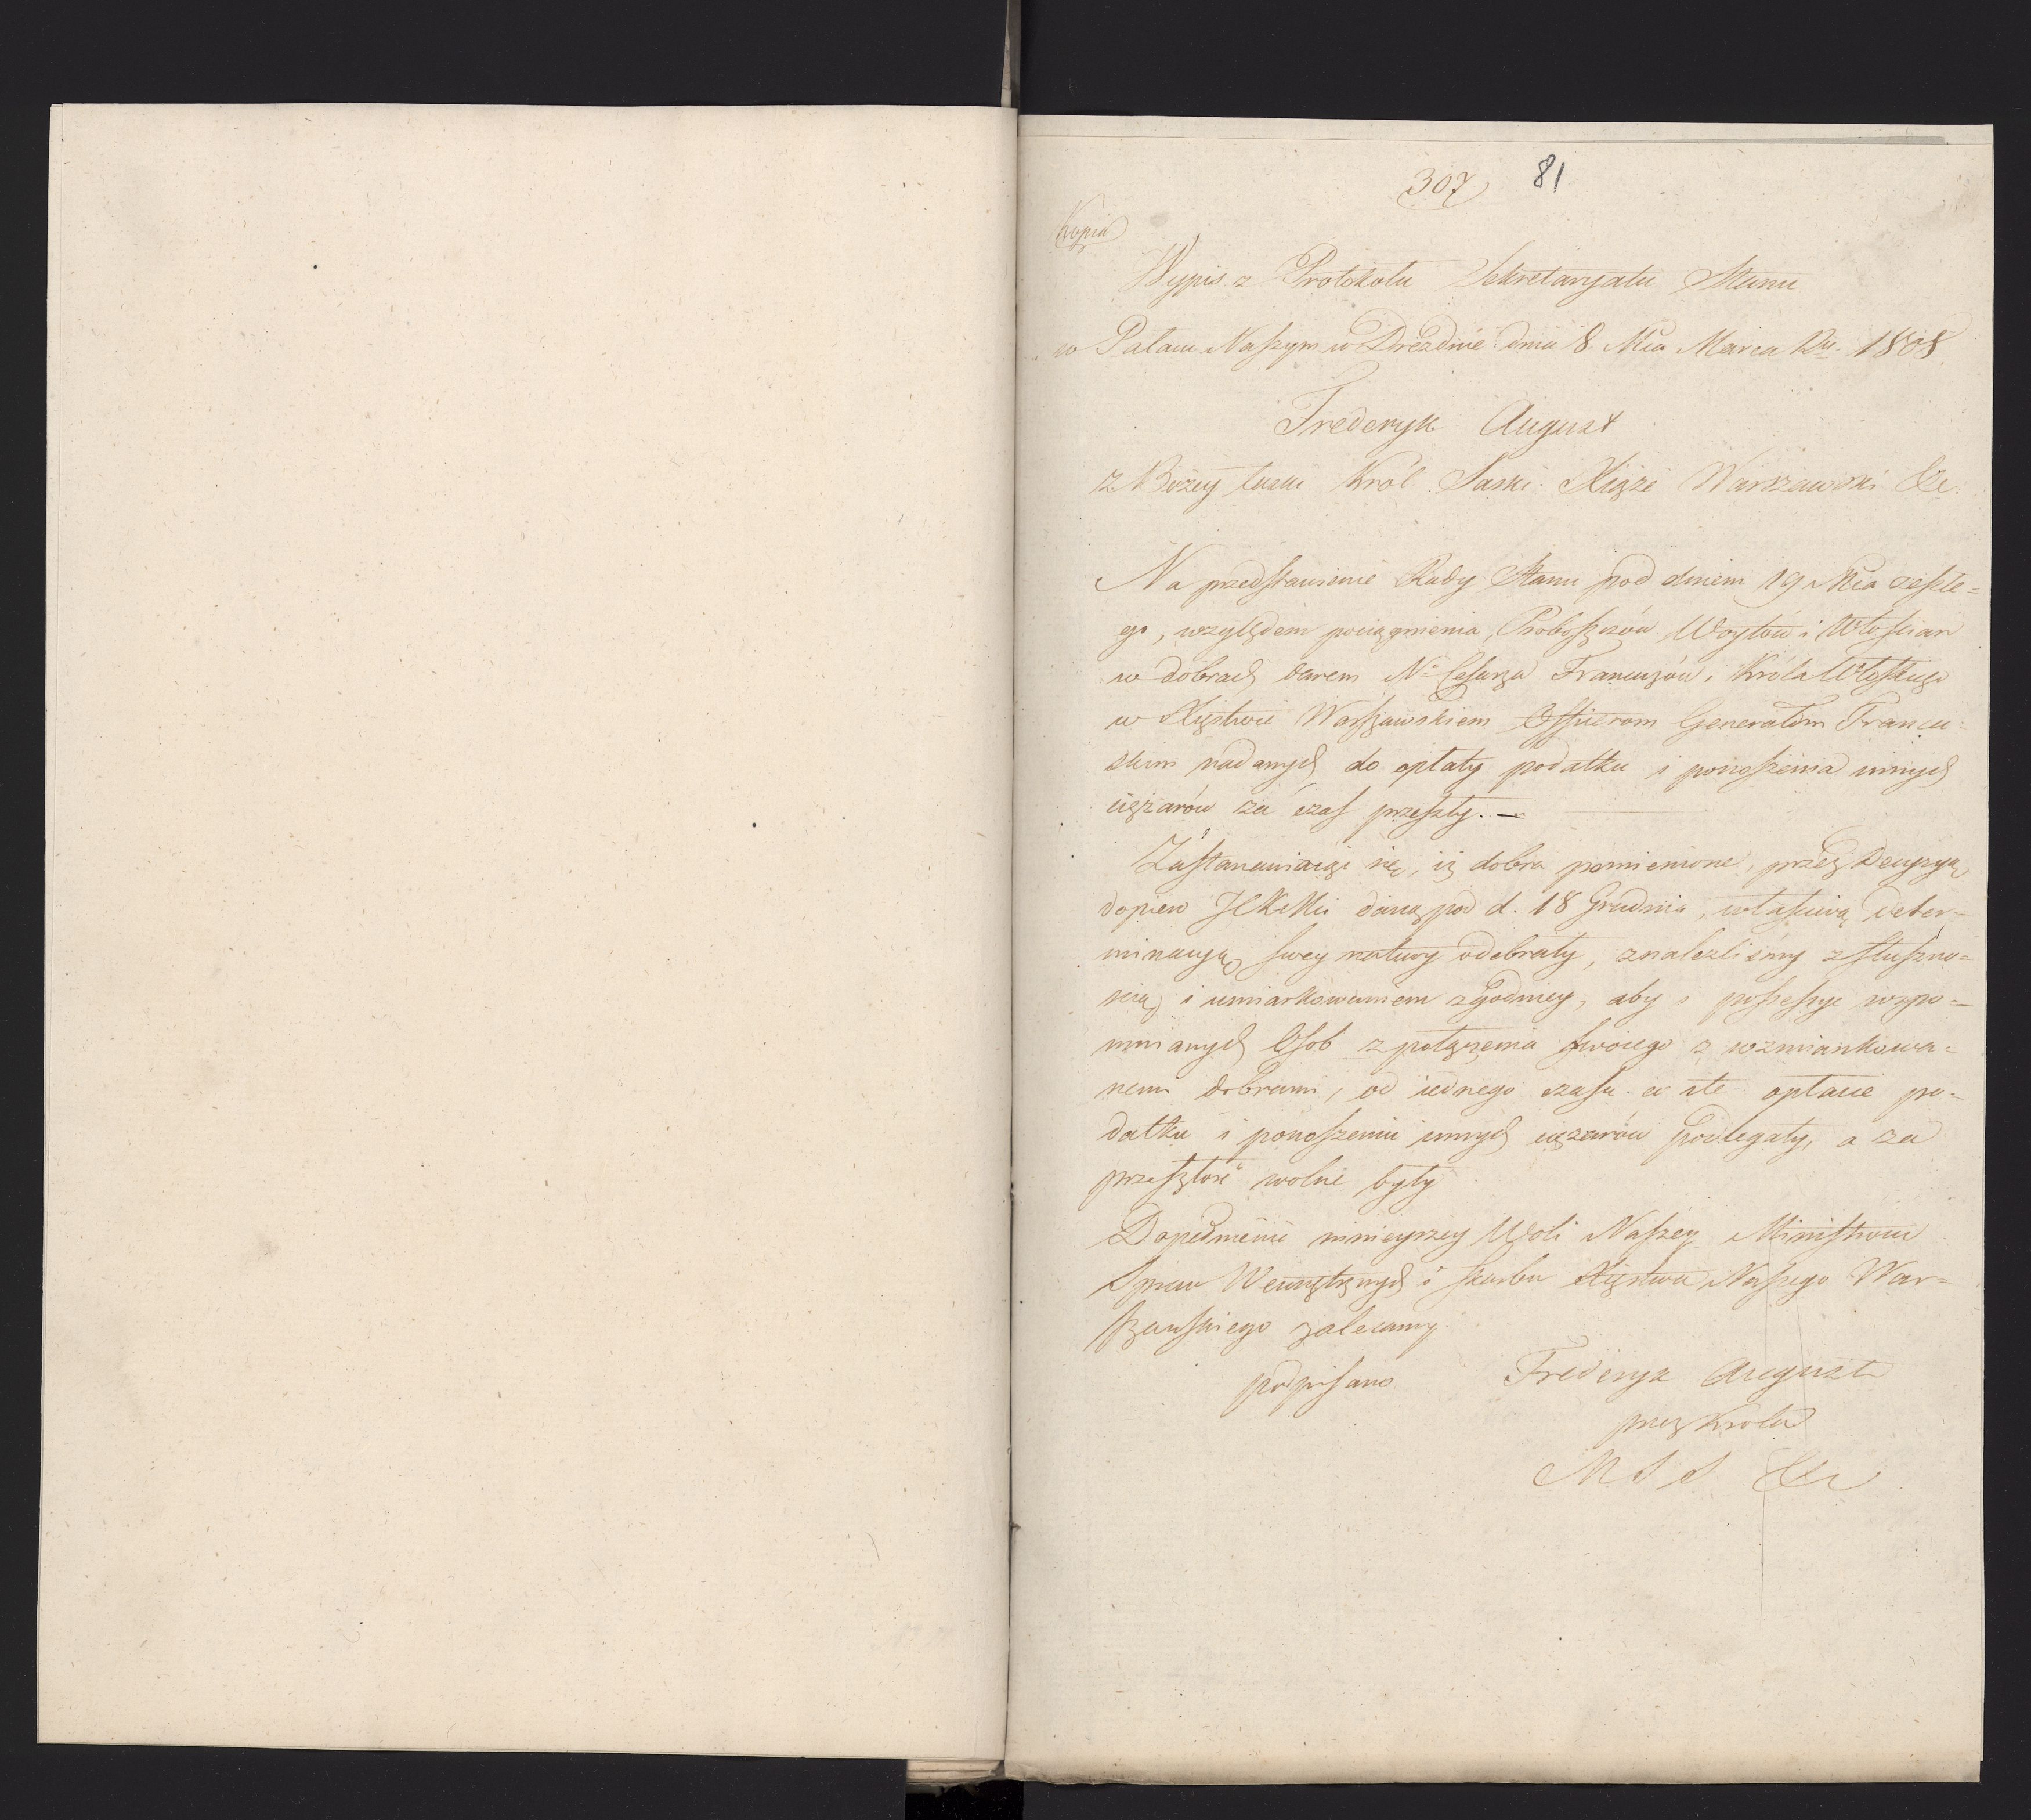 307, 81
Kopia
Wypis z Protokołu Sekretaryatu Stanu
w Pałacu Naszym w Dreznie dnia 8 Mca Marca Rku 1808
Frederyk August
z Bożey łaski Król Saski Xiąże Warszawski &c.
Na przedstawienie Rady Stanu pod dniem 19 Mca zeszłe=
go, względem pociągnienia Proboszczów Woytów i Włoscian
w dobrach darem N. Cesarza Francuzów i Króla Włoskiego
w Xięstwie Warszawskiem Officerom Generałom Francu=
skim nadanych do opłaty podatku i ponoszenia innych
ciężarów za czas przeszły. —
Zastanawiaiąc się, iż dobra pomienione, przez Decyzyą
dopiero JCKMci daną pod d. 18 Grudnia, własciwą deter=
minacyą swey natury odebrały, znalezlismy z słuszno=
scią i umiarkowaniem zgodniey, aby i possessye wspo=
mnianych Osob z połączenia swoiego z wzmiankowa=
nemi dobrami, od iednego czasu ... opłacie po=
datku i ponoszeniu innych ciężarów podlegały, a za
przeszłość wolne były
Dopełnienie ninieyszey Woli Naszey Ministrom
Spraw Wewnętrznych i Skarbu Xięstwa Naszego War=
szawskiego zalecamy.
podpisano Frederyk August
przez Krola
M S S &c